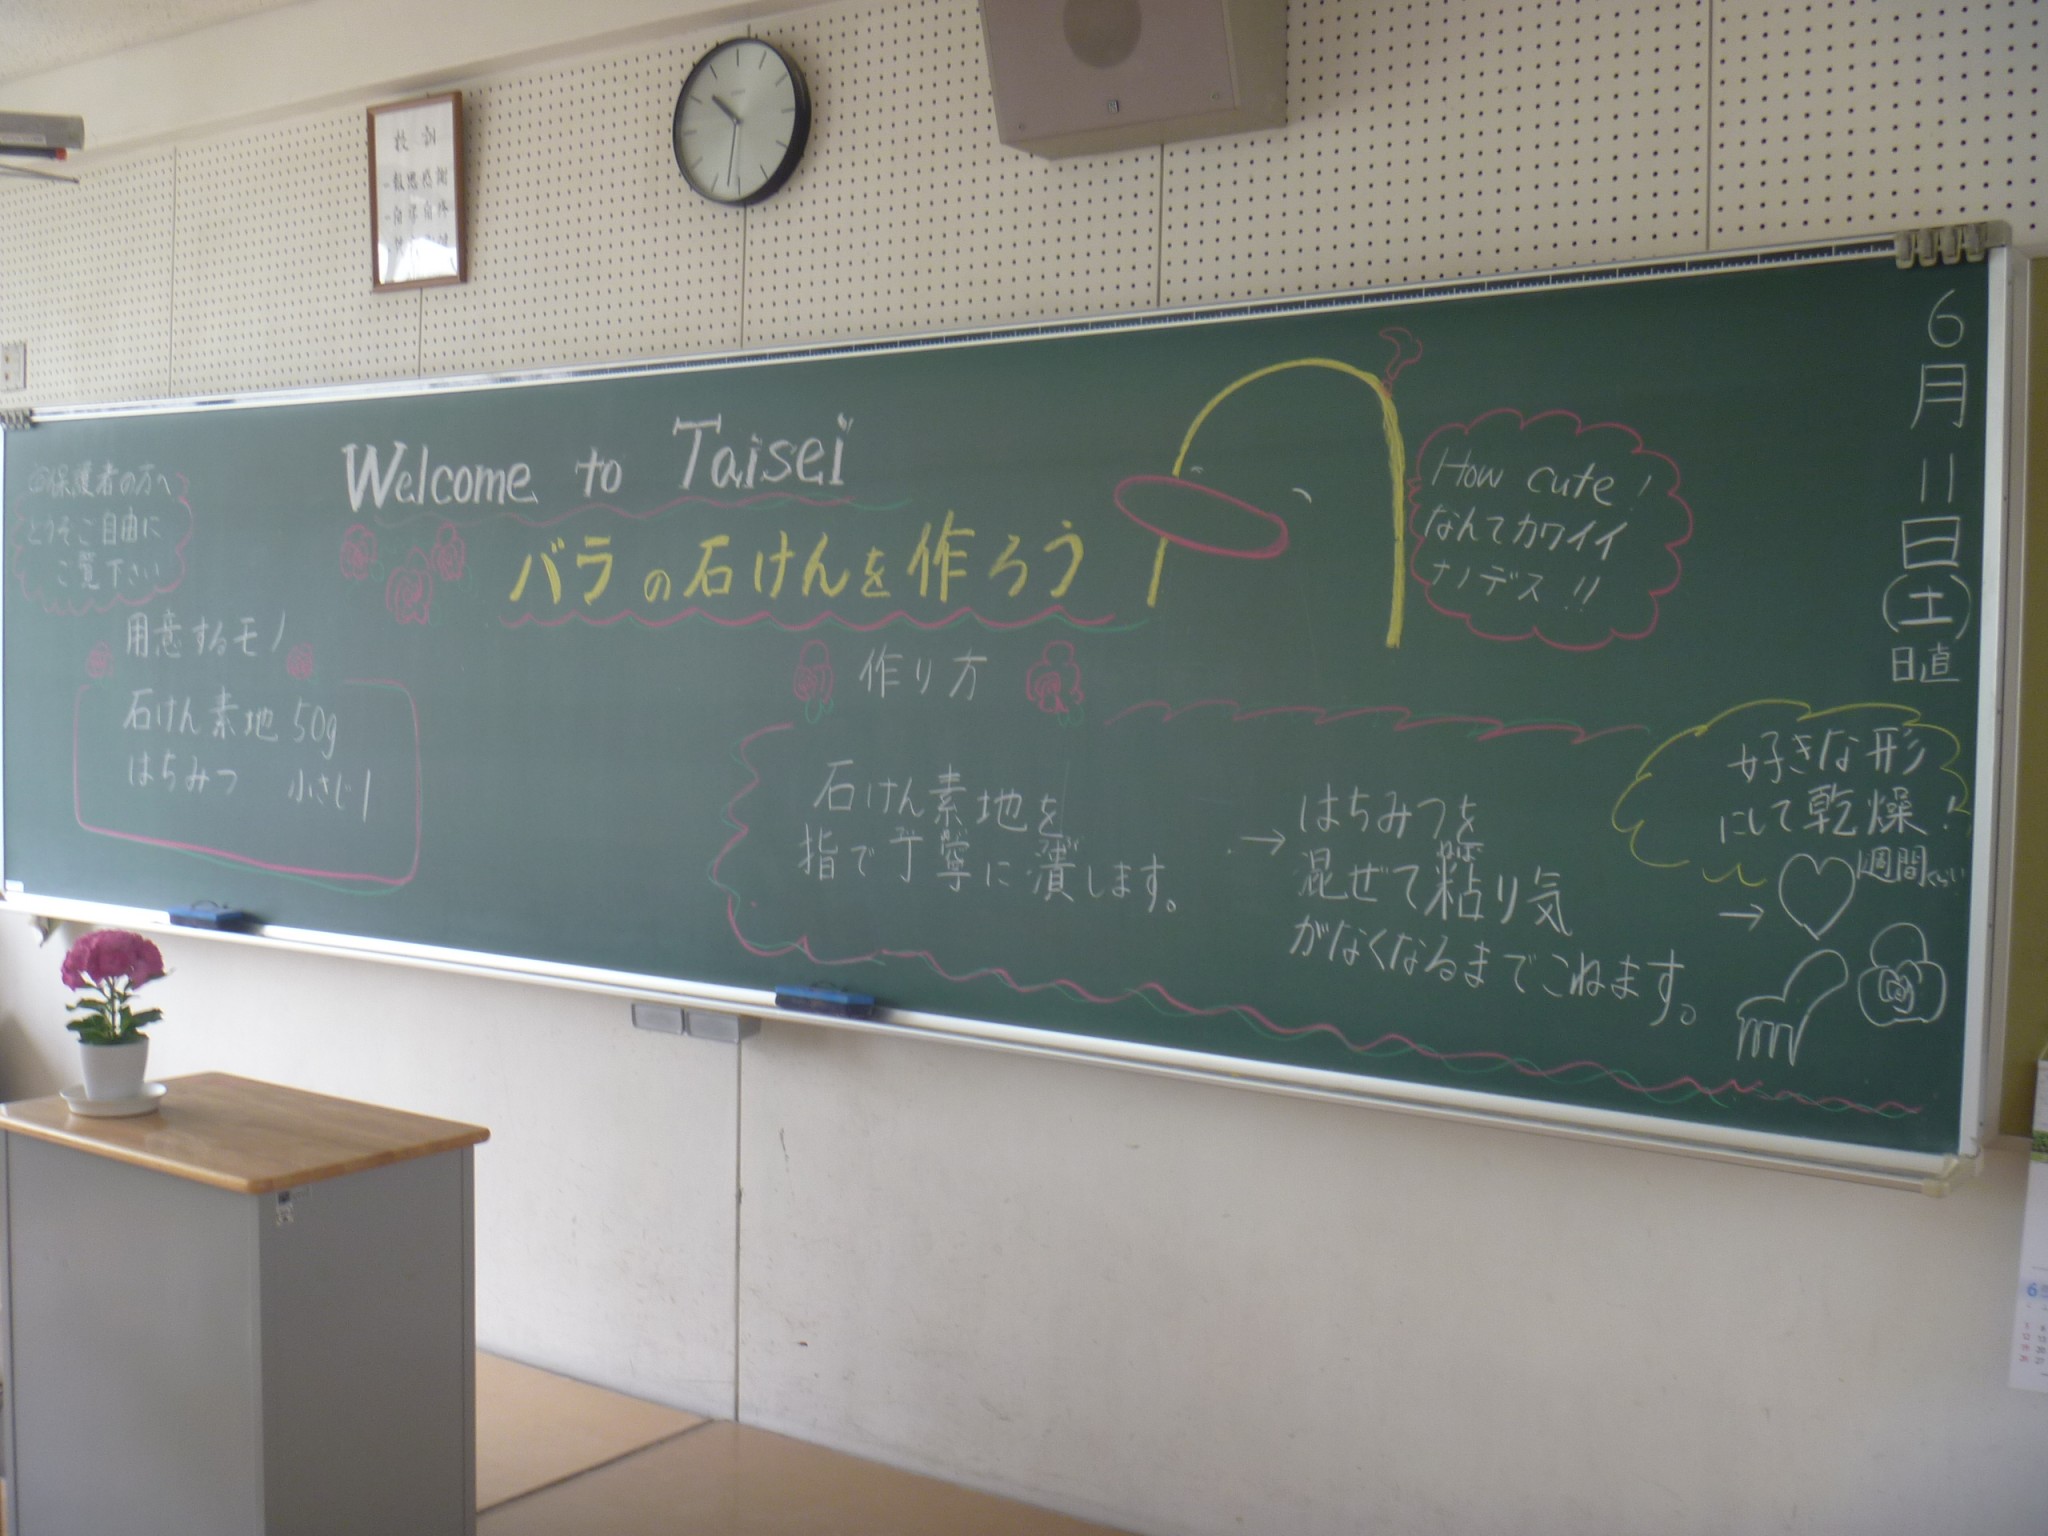 校訓
Welcome to Taisei
バラの石けんを作ろう
◎保護者の方へ
どうぞご自由に
ご覧下さい
用意するモノ
石けん素地 50g
はちみつ 小さじ1
作り方
石けん素地を
指で丁寧に潰します。
→はちみつを
混ぜて粘り気
がなくなるまでこねます。
→
好きな形
にして乾燥!
週間くらい
How cute!
なんてカワイイ
ナノデス!!
6月11日(土)
日直
6